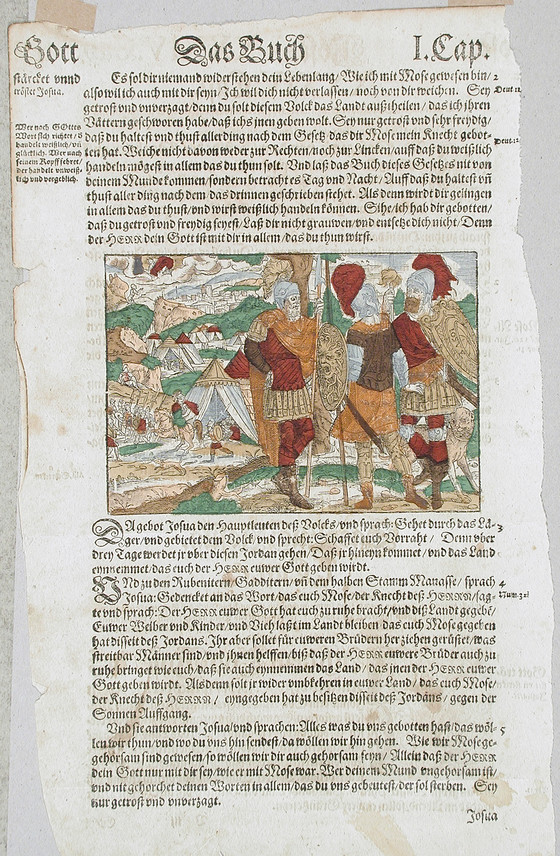 Gott
Das Buch
I. Cap.
stärcket vnnd
tröstet Josua.
Wer nach GOttes
Wort sich richtet/ d
handelt weißlich/ vñ
glücklich. Wer nach
seinem Kopff fehret/
der handelt vnweiß-
lich vnd vergeblich.
Es sol dir niemand widerstehen dein Lebenlang/ Wie ich mit Mose gewesen bin/ 2
also wil ich auch mit dir seyn/ Ich wil dich nicht verlassen/ noch von dir weichen. Sey Deut. 31.
getrost vnd vnverzagt/ denn du solt diesem Volck das Landt außtheilen/ das ich jhren
Vättern geschworen habe/ daß ichs jnen geben wolt. Sey nur getrost vnd sehr freydig/
daß du haltest vnd thust aller ding nach dem Gesetz das dir Mose mein Knecht gebot- Deut. 12.
ten hat. Weiche nicht davon weder zur Rechten/ noch zur Lincken/ auff daß du weißlich
handeln mögest in allem das du thun solt. Vnd laß das Buch dieses Gesetzes nit von
deinem Munde kommen/ sondern betracht es Tag vnd Nacht/ Auff daß du haltest vñ
thust aller ding nach dem/ das drinnen geschrieben stehet. Als denn wirdt dir gelingen
in allem das du thust/ vnd wirst weißlich handeln können. Sihe/ ich hab dir gebotten/
daß du getrost vnd freydig seyest/ Laß dir nicht grauwen/ vnd entsetze dich nicht/ Denn
der HERR dein Gott ist mit dir in allem/ das du thun wirst.
DA gebot Josua den Hauptleuten deß Volcks/ vnd sprach: Gehet durch das Lä- 3
ger/ vnd gebietet dem Volck/ vnd sprecht: Schaffet euch Vorraht/ Denn vber
drey Tage werdet jr vber diesen Jordan gehen/ Daß jr hineyn kommet/ vnd das Land
eynnemmet/ das euch der HERR euwer Gott geben wirdt.
VNd zu den Rubenitern/ Gadditern/ vñ dem halben Stamm Manasse/ sprach 4
Josua: Gedencket an das Wort/ das euch Mose/ der Knecht deß HERRN/ sag- Num. 32.
te vnd sprach: Der HERR euwer Gott hat euch zu ruhe bracht/ vnd diß Landt gegebē/
Euwer Weiber vnd Kinder/ vnd Vieh laßt im Landt bleiben/ das euch Mose gegeben
hat disseit deß Jordans. Jhr aber sollet für euweren Brüdern her ziehen gerüstet/ was
streitbar Männer sind/ vnd jhnen helffen/ biß daß der HERR euwere Brüder auch zu
ruhe bringet wie euch/ daß sie auch eynnemmen das Land/ das jnen der HERR euwer
Gott geben wirdt. Als denn solt jr wider vmbkehren in euwer Land/ das euch Mose/
der Knecht deß HERRN/ eyngegeben hat zu besitzen disseit deß Jordans/ gegen der
Sonnen Auffgang.
Vnd sie antworten Josua/ vnd sprachen: Alles was du vns gebotten hast/ das wöl- 5
len wir thun/ vnd wo du vns hin sendest/ da wöllen wir hin gehen. Wie wir Mose ge-
gehörsam sind gewesen/ so wöllen wir dir auch gehorsam seyn/ Allein daß der HERR
dein Gott nur mit dir sey/ wie er mit Mose war. Wer deinem Mund vngehorsam ist/
vnd nit gehorchet deinen Worten in allem/ das du vns gebeutest/ der sol sterben. Sey
nur getrost vnd vnverzagt.
Josua